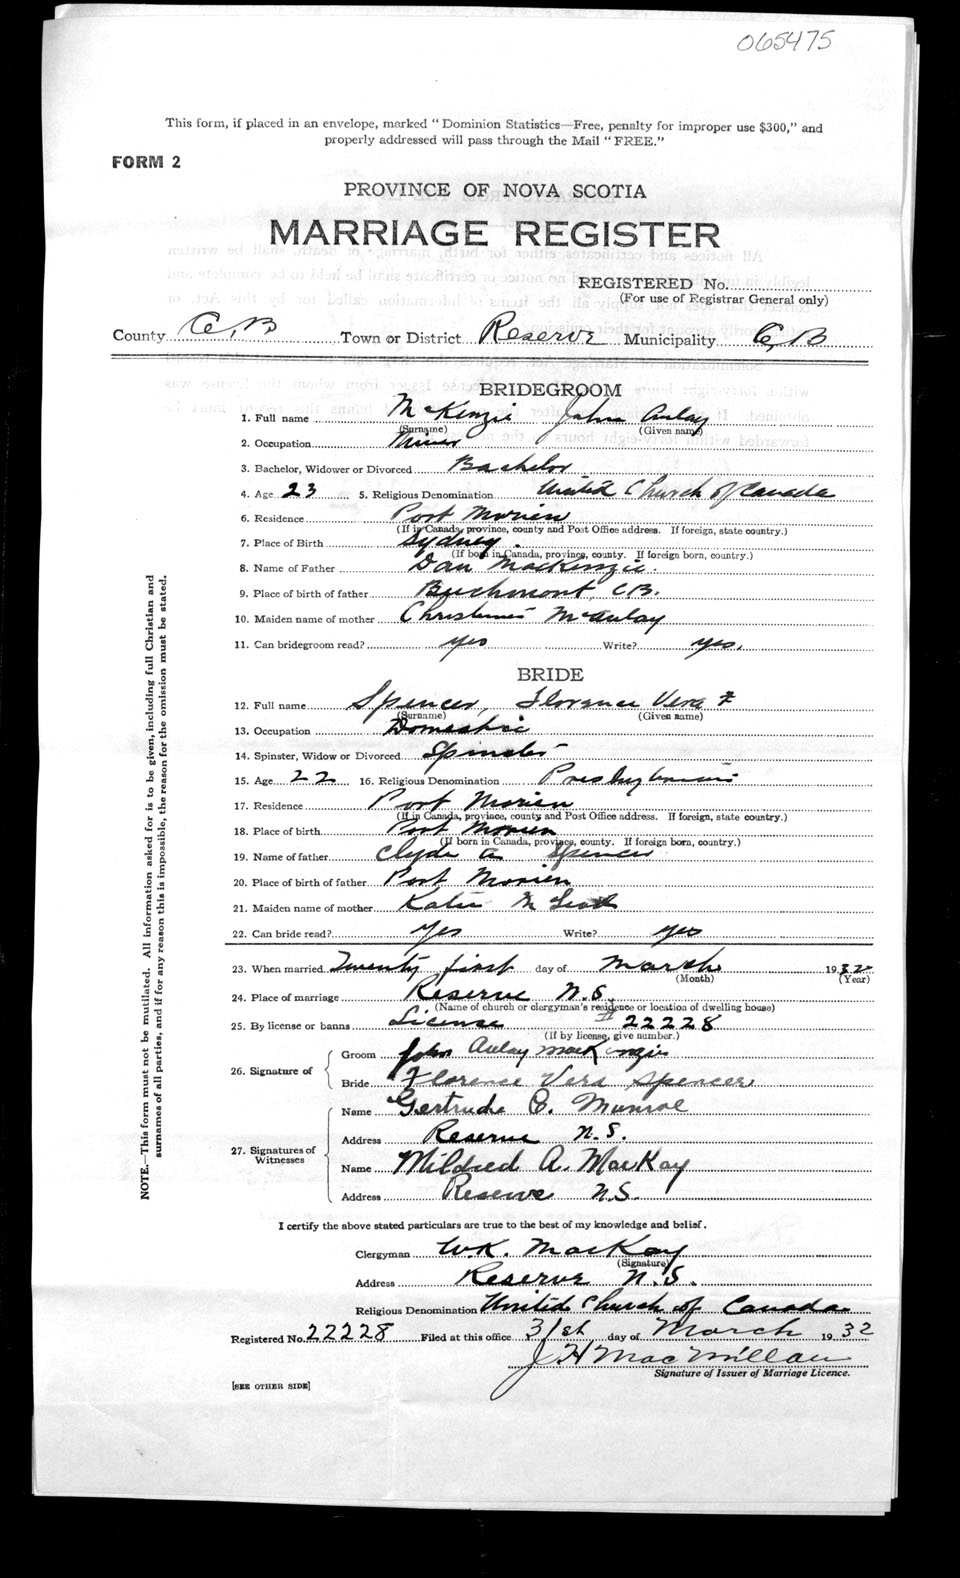 065475
This form, if placed in an envelope, marked "Dominion Statistics—Free, penalty for improper use $300," and
properly addressed will pass through the Mail "FREE."
FORM 2
PROVINCE OF NOVA SCOTIA
MARRIAGE REGISTER
REGISTERED No.
(For use of Registrar General only)
County C, B. Town or District Reserve Municipality C, B
BRIDEGROOM
1. Full name McKenzie John Aulay
(Surname) (Given name)
2. Occupation Miner
3. Bachelor, Widower or Divorced Bachelor
4. Age 23 5. Religious Denomination United Church of Canada
6. Residence Port Morien
(If in Canada, province, county and Post Office address. If foreign, state country.)
7. Place of Birth Sydney.
(If born in Canada, province, county. If foreign born, country.)
8. Name of Father Dan MacKenzie.
9. Place of birth of father Beechmont, C.B.
10. Maiden name of mother McAulay
11. Can bridegroom read? yes Write? yes.
BRIDE
12. Full name Spencer, Florence Vera
(Surname) (Given name)
13. Occupation Domestic
14. Spinster, Widow or Divorced Spinster
15. Age 22 16. Religious Denomination Presbyterian
17. Residence Port Morien
(If in Canada, province, county and Post Office address. If foreign, state country.)
18. Place of birth Port Morien
(If born in Canada, province, county. If foreign born, country.)
19. Name of father Clyde A Spencer
20. Place of birth of father Port Morien
21. Maiden name of mother Katie
22. Can bride read? yes Write? yes
23. When married Twenty first day of March 1932
(Month) (Year)
24. Place of marriage Reserve N.S.
(Name of church or clergyman's residence or location of dwelling house)
25. By license or banns License # 22228
(If by license, give number.)
26. Signature of
Groom John Aulay MacKenzie
Bride Florence Vera Spencer
27. Signatures of Witnesses
Name Gertrude C. Munroe
Address Reserve N.S.
Name Mildred A. MacKay
Address Reserve N.S.
I certify the above stated particulars are true to the best of my knowledge and belief.
Clergyman W.K. MacKay
(Signature)
Address Reserve N.S.
Religious Denomination United Church of Canada
Registered No. 22228 Filed at this office 31st day of March 1932
J H MacMillan
Signature of Issuer of Marriage Licence.
[SEE OTHER SIDE]
NOTE.—This form must not be mutilated. All information asked for is to be given, including full Christian and
surnames of all parties, and if for any reason this is impossible, the reason for the omission must be stated.